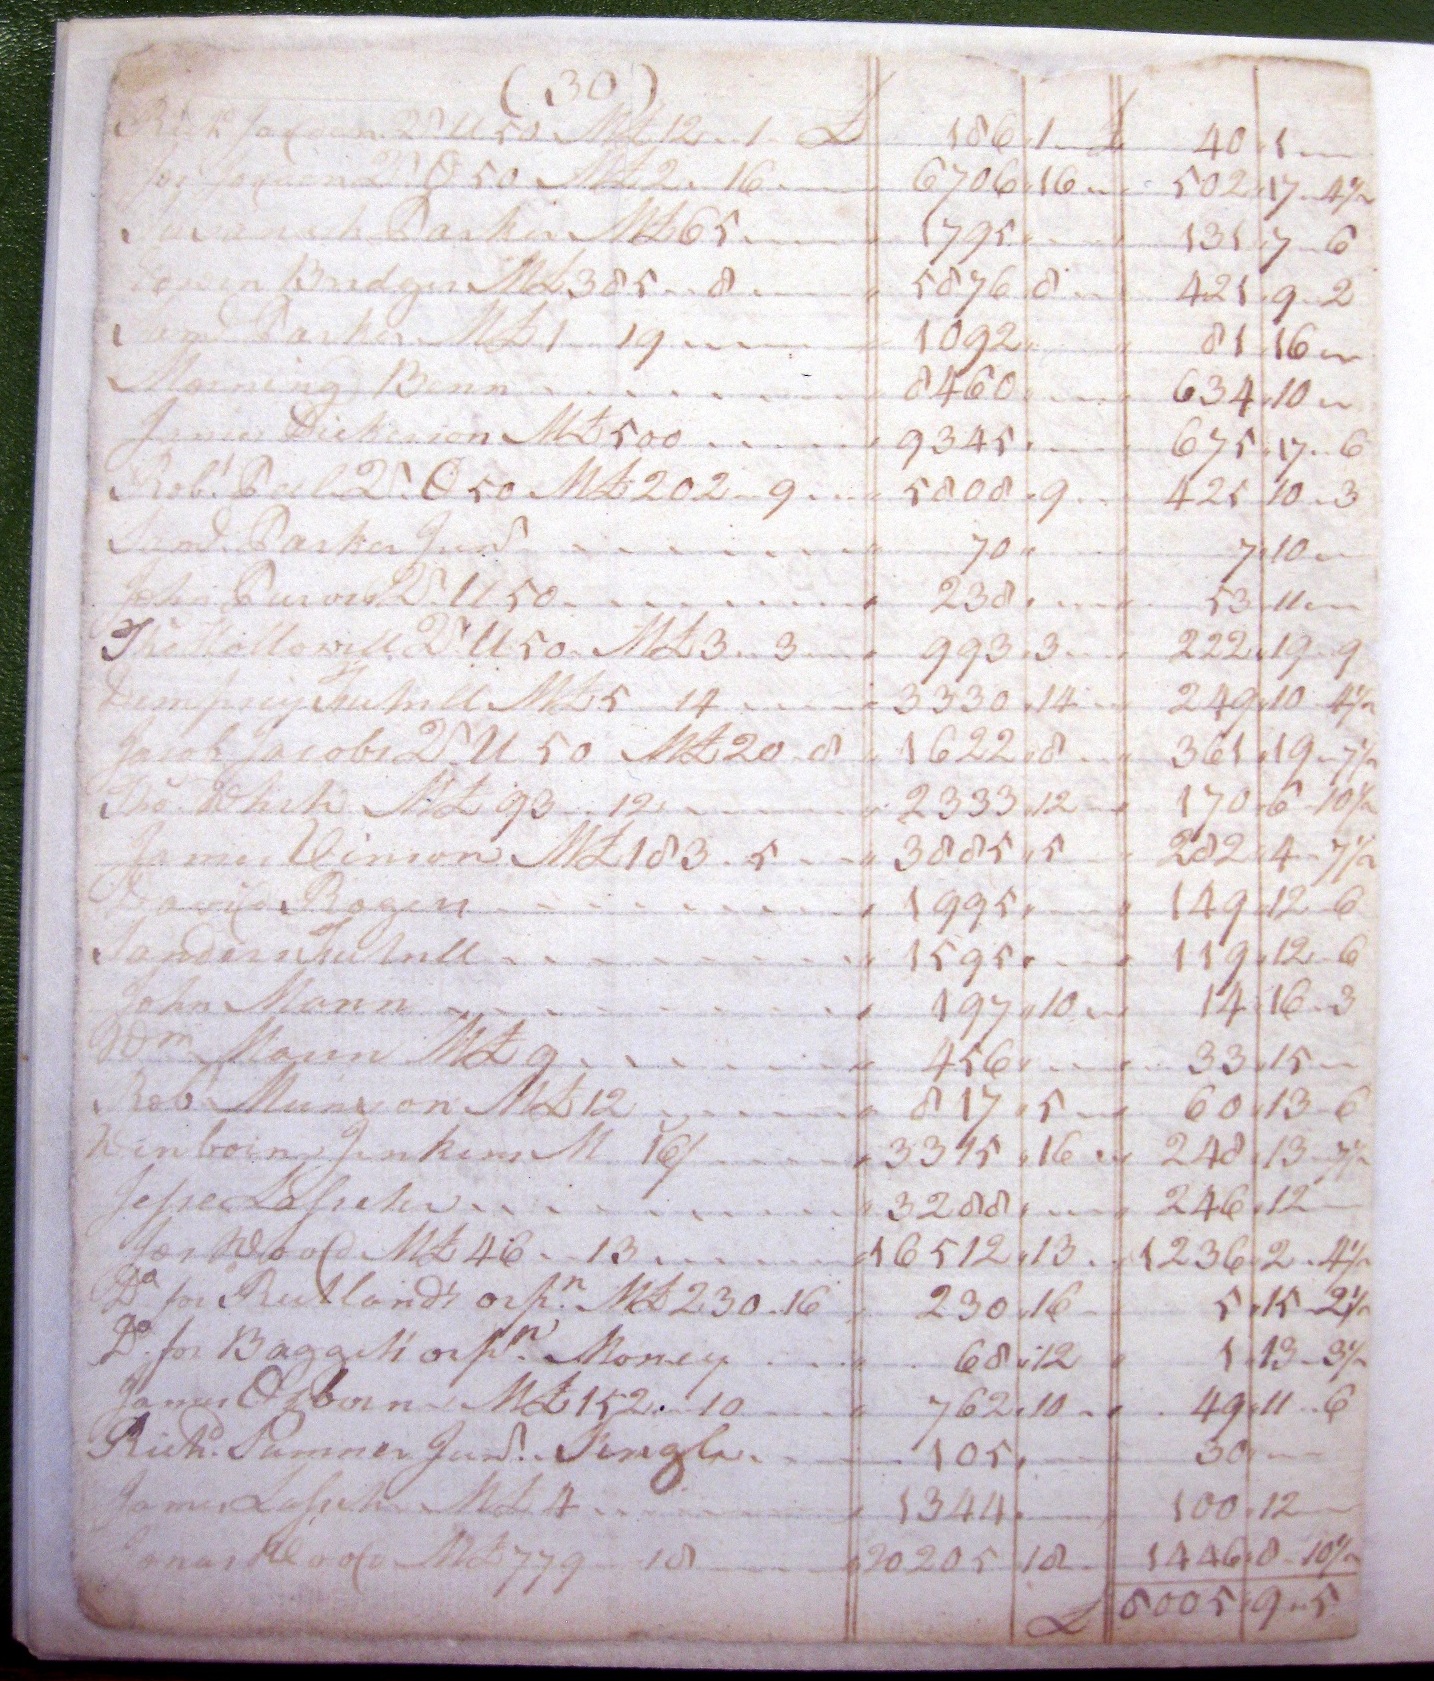 (30)
Rich.d Jordan 2d U 50 M£ 12 1 £ 186 1 £ 40 1
Jos Jordan 2d O 50 M£ 2 16 6706 16 502 17 4½
Susanah Parker M£ 65 1795 131 7 6
Edwin Bridger M£ 385 8 5876 8 421 9 2
Sam.l Parker M£ 1 19 1092 81 16
Morning Benn 8460 634 10
James Dickenson M£ 500 9345 675 17 6
Rob.t Peel 2d O 50 M£ 202 9 5808 9 425 10 3
Sam.l Parker Jun.r 70 7 10
John Purvis 2d U 50 238 53 11
Tho Hollowell 2d U 50 M£ 3 3 993 3 222 19 9
Tuthill M£ 5 14 3330 14 249 10 4½
Jacob Jacobs 2d U 50 M£ 20 8 1622 8 361 19 7½
Tho. M£ 93 12 2333 12 170 6 10½
James Vinson M£ 183 5 3885 5 282 4 7½
David Rogers 1995 149 12 6
Sanders Tuthill 1595 119 12 6
John Mann 197 10 14 16 3
Wm Mann M£ 9 456 33 15
Rob.t M£ 12 817 5 60 13 6
Winborn Jenkins M 16/ 3315 16 248 13 7½
Jesse Lassiter 3288 246 12
Jas Wood M£ 46 13 16512 13 1236 2 4½
Do for Rutland's orpn. M£ 230 16 230 16 5 15 2½
Do. for Baggett orpn. Money 68 12 1 13 3½
James Osborn M£ 152 10 762 10 49 11 6
Richd. Sumner Junr. Single 105 30
James Lassiter M£ 4 1344 100 12
Jonas Wood M£ 779 18 20205 18 1446 8 10½
£ 8005 9 5